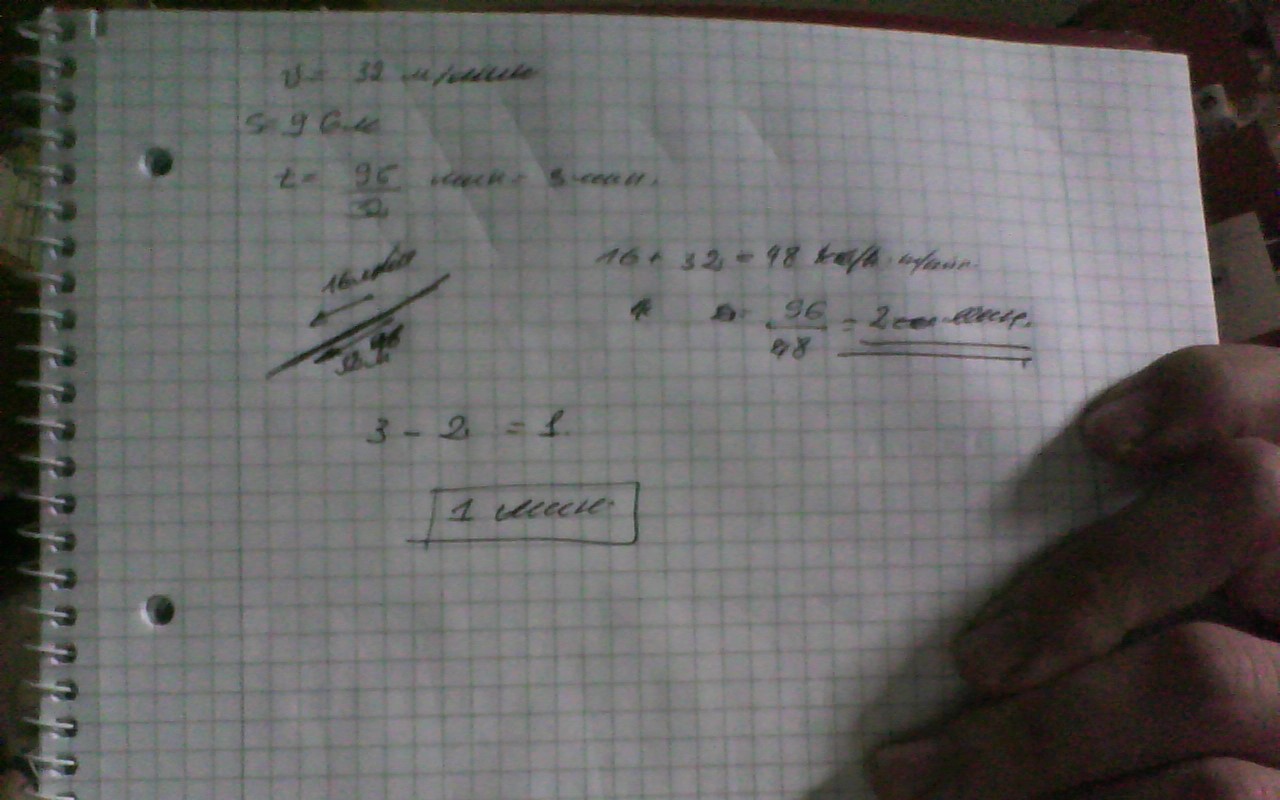 v= 32 м/мин
S= 96м
t= 96/32 мин= 3 мин.
16 м/мин
16 + 32 = 48 м/мин.
96/48 = 2 мин.
3 - 2 = 1.
1 мин.